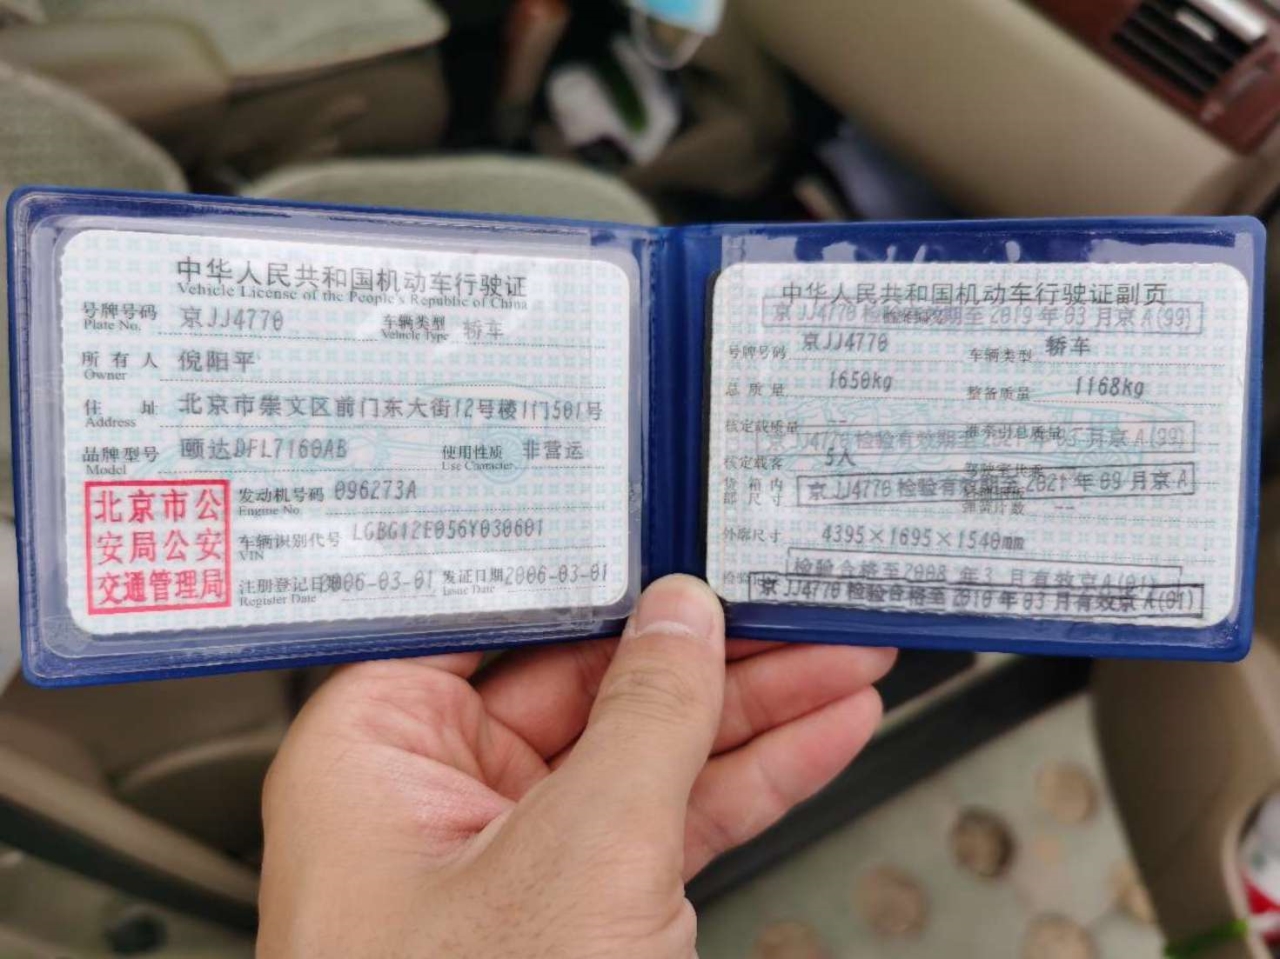 中华人民共和国机动车行驶证
Vehicle License of the People's Republic of China
号牌号码 京JJ4770 车辆类型 轿车
Plate No. Vehicle Type
所有人 倪阳平
Owner
住址 北京市崇文区前门东大街12号楼1门501号
Address
品牌型号 颐达DFL7160AB 使用性质 非营运
Model Use Character
北京市公安局公安交通管理局
发动机号码 096273A
Engine No.
车辆识别代号 LGBG12E056Y030601
VIN
注册登记日期 2006-03-01 发证日期 2006-03-01
Register Date Issue Date
中华人民共和国机动车行驶证副页
京JJ4770 检验有效期至 2019年03月京A(99)
号牌号码 京JJ4770 车辆类型 轿车
总质量 1650kg 整备质量 1168kg
核定载质量 -- 准牵引总质量
JJ4770 检验有效期至 月京A(99)
核定载客 5人
货箱内部尺寸
京JJ4770 检验有效期至 2021年09月京A
外廓尺寸 4395×1695×1540mm
检验合格至2008年3月有效京A(01)
京JJ4770 检验合格至 2010年03月有效京A(01)